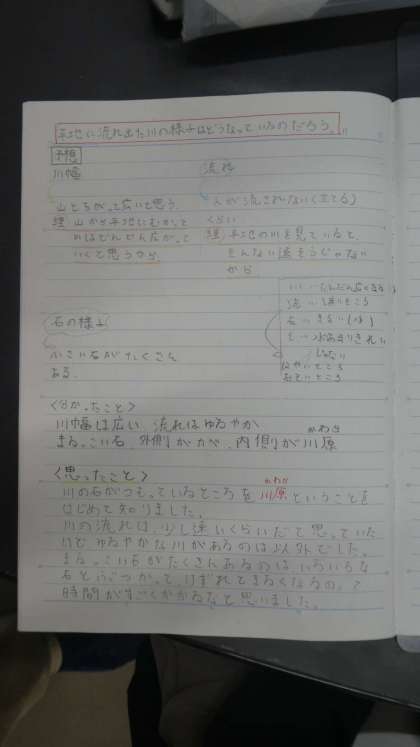 平地に流れ出た川の様子はどうなっているのだろう。
予想
川幅
山とちがって広いと思う。
理 山から平地にむかって
川はどんどん広がって
いくと思うから。
流れ
人が流されない(立てる)
くらい
理 平地の川を見ていると、
そんなに速そうじゃない
から
石の様子
小さい石がたくさん
ある。
はやいところ
おそいところ
〈分かったこと〉
川幅は広い 流れはゆるやか
まるっこい石、外側ががけ、内側が川原
かわら
〈思ったこと〉
かわら
川の石がつもっているところを川原ということを
はじめて知りました。
川の流れは、少し速いくらいだと思っていた
けどゆるやかな川があるのは以外でした。
まるっこい石がたくさんあるのはいろいろな
石とぶつかって、けずれてまるくなるので
時間がすごくかかるなと思いました。